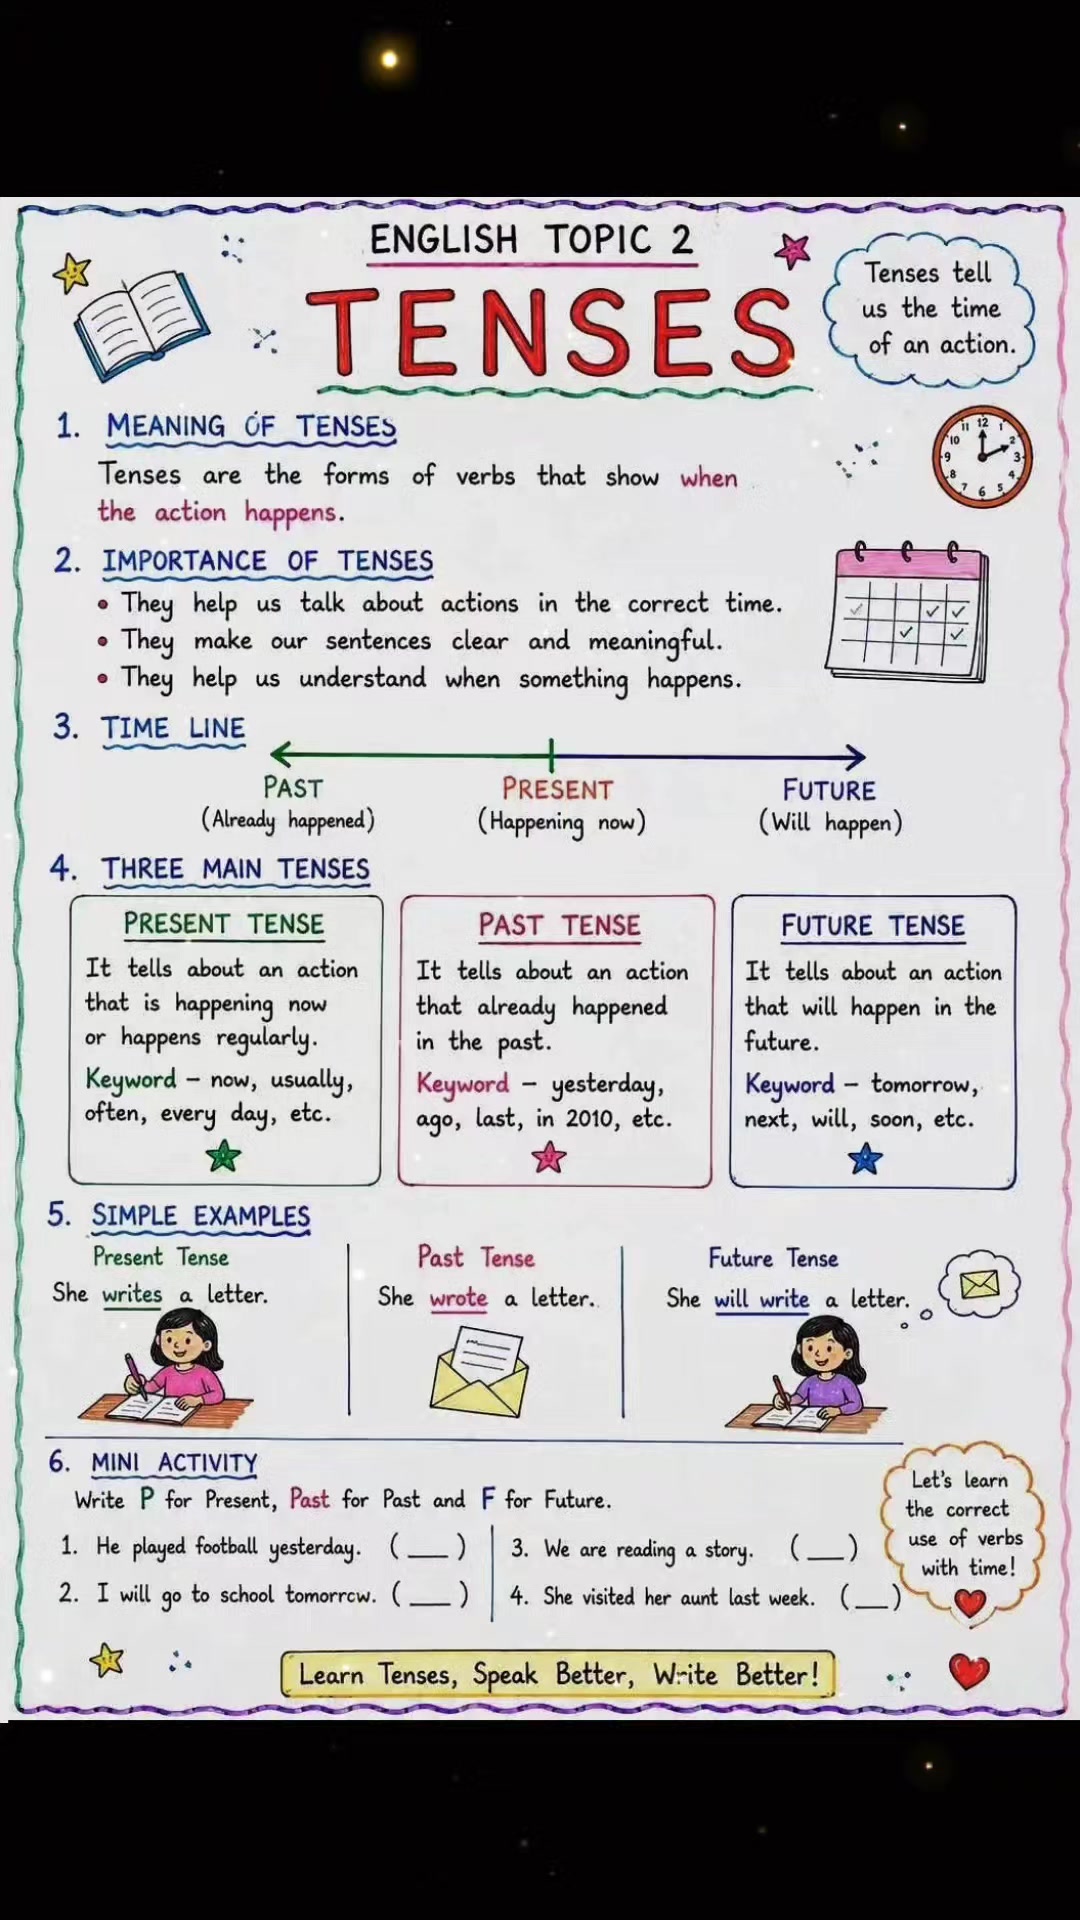 ENGLISH TOPIC 2
TENSES
Tenses tell
us the time
of an action.
1. MEANING OF TENSES
Tenses are the forms of verbs that show when
the action happens.
12
1
2
3
4
5
6
7
8
9
10
11
2. IMPORTANCE OF TENSES
• They help us talk about actions in the correct time.
• They make our sentences clear and meaningful.
• They help us understand when something happens.
3. TIME LINE
PAST
(Already happened)
PRESENT
(Happening now)
FUTURE
(Will happen)
4. THREE MAIN TENSES
PRESENT TENSE
It tells about an action
that is happening now
or happens regularly.
Keyword – now, usually,
often, every day, etc.
PAST TENSE
It tells about an action
that already happened
in the past.
Keyword – yesterday,
ago, last, in 2010, etc.
FUTURE TENSE
It tells about an action
that will happen in the
future.
Keyword – tomorrow,
next, will, soon, etc.
5. SIMPLE EXAMPLES
Present Tense
She writes a letter.
Past Tense
She wrote a letter.
Future Tense
She will write a letter.
6. MINI ACTIVITY
Write P for Present, Past for Past and F for Future.
1. He played football yesterday. ( __ )
2. I will go to school tomorrcw. ( __ )
3. We are reading a story. ( __ )
4. She visited her aunt last week. ( __ )
Let's learn
the correct
use of verbs
with time!
Learn Tenses, Speak Better, Write Better!